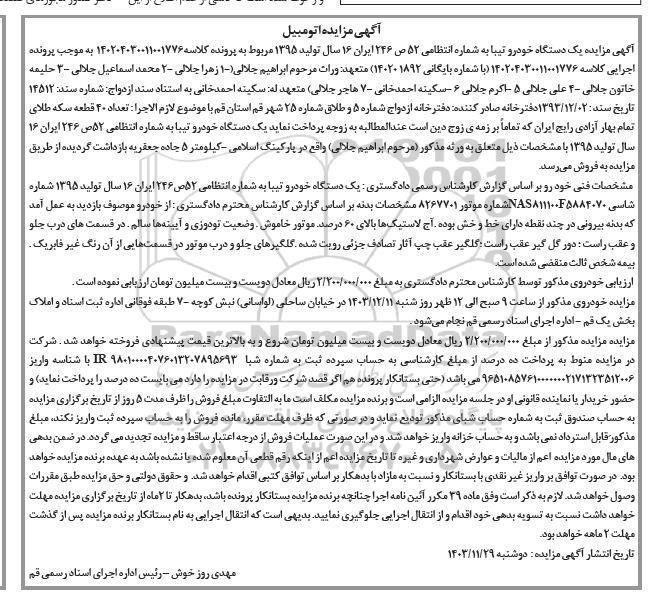 آگهی مزایده اتومبیل
آگهی مزایده یک دستگاه خودرو تیبا به شماره انتظامی ۵۲ ص ۲۴۶ ایران ۱۶ سال تولید ۱۳۹۵ مربوط به پرونده کلاسه۱۴۰۲۰۴۰۳۰۰۱۱۰۰۱۷۷۶ به موجب پرونده
اجرایی کلاسه ۱۴۰۲۰۴۰۳۰۰۱۱۰۰۱۷۷۶ (با شماره بایگانی ۱۴۰۲۰۱۸۹۲) متعهد: وراث مرحوم ابراهیم جلالی(۱- زهرا جلالی ۲- محمد اسماعیل جلالی ۳- حلیمه
خاتون جلالی ۴- علی جلالی ۵ -اکرم جلالی ۶ -سکینه احمدخانی ۷- هاجر جلالی) متعهد له: سکینه احمدخانی به استناد سند ازدواج: شماره سند: ۱۴۵۱۲
تاریخ سند: ۱۳۹۳/۱۲/۰۲دفترخانه صادر کننده: دفترخانه ازدواج شماره ۵ و طلاق شماره ۲۵ شهر قم استان قم با موضوع لازم الاجرا: تعداد ۴۰ قطعه سکه طلای
تمام بهار آزادی رایج ایران که تماماً بر زمه ی زوج دین است عندالمطالبه به زوجه پرداخت نماید یک دستگاه خودرو تیبا به شماره انتظامی ۵۲ص ۲۴۶ ایران ۱۶
سال تولید ۱۳۹۵ با مشخصات ذیل متعلق به ورثه مذکور (مرحوم ابراهیم جلالی) واقع در پارکینگ اسلامی -کیلومتر ۵ جاده جعفریه بازداشت گردیده از طریق
مزایده به فروش می‌رسد.
مشخصات فنی خودرو بر اساس گزارش کارشناس رسمی دادگستری : یک دستگاه خودرو تیبا به شماره انتظامی ۵۲ص۲۴۶ ایران ۱۶ سال تولید ۱۳۹۵ شماره
شاسی NAS۸۱۱۱۰۰F۵۸۸۴۰۷۰شماره موتور ۸۲۶۷۷۰۱ مشخصات بدنه بر اساس گزارش کارشناس محترم دادگستری : از خودرو موصوف بازدید به عمل آمد
که بدنه بیرونی در چند نقطه دارای خط و خش بوده . آج لاستیک‌ها بالای ۶۰ درصد. موتور خاموش . وضعیت تودوزی و آیینه‌ها سالم . در قسمت های درب جلو
و عقب راست : دور گل گیر عقب راست :گلگیر عقب چپ آثار تصادف جزئی رویت شده .گلگیرهای جلو و درب موتور در قسمت‌هایی از آن رنگ غیر فابریک .
بیمه شخص ثالث منقضی شده است.
ارزیابی خودروی مذکور توسط کارشناس محترم دادگستری به مبلغ ۲/۲۰۰/۰۰۰/۰۰۰ ریال معادل دویست و بیست میلیون تومان ارزیابی نموده است .
مزایده خودروی مذکور از ساعت ۹ صبح الی ۱۲ ظهر روز شنبه ۱۴۰۳/۱۲/۱۱ در خیابان ساحلی (لواسانی) نبش کوچه ۷- طبقه فوقانی اداره ثبت اسناد و املاک
بخش یک قم - اداره اجرای اسناد رسمی قم نجام می‌شود .
مزایده مزایده مذکور از مبلغ ۲/۲۰۰/۰۰۰/۰۰۰ ریال معادل دویست و بیست میلیون تومان شروع و به بالاترین قیمت پیشنهادی فروخته خواهد شد . شرکت
در مزایده منوط به پرداخت ده درصد از مبلغ کارشناسی به حساب سپرده ثبت به شماره شبا IR ۹۸۰۱۰۰۰۰۴۰۷۶۰۱۳۲۰۷۸۹۵۶۹۳ با شناسه واریز
۹۶۵۱۰۸۵۷۶۱۰۰۰۰۰۰۰۲۱۷۱۳۲۳۵۱۲۰۰۶ می باشد (حتی بستانکار پرونده هم اگر قصد شرکت و رقابت در مزایده را دارد می بایست ده درصد را پرداخت نماید) و
حضور خریدار یا نماینده قانونی او در جلسه مزایده الزامی است و برنده مزایده مکلف است ما به التفاوت مبلغ فروش را ظرف مدت ۵ روز از تاریخ برگزاری مزایده
به حساب صندوق ثبت به شماره حساب شبای مذکور تودیع نماید و در صورتی که ظرف مهلت مقرر، مانده فروش را به حساب سپرده ثبت واریز نکند، مبلغ
مذکور:قابل استرداد نمی باشد و به حساب خزانه واریز خواهد شد. و در این صورت عملیات فروش از درجه اعتبار ساقط و مزایده تجدید می گردد. در ضمن بدهی
های مال مورد مزایده اعم از مالیات و عوارض شهرداری و غیره تا تاریخ مزایده اعم از اینکه رقم قطعی آن معلوم شده یا نشده باشد به عهده برنده مزایده خواهد
بود. در صورت توافق بر واریز غیر نقدی با بستانکار و نسبت به مازاد با بدهکار بر اساس توافق کتبی اقدام خواهد شد. و حقوق دولتی و حق مزایده طبق مقررات
وصول خواهد شد. لازم به ذکر است وفق ماده ۳۹ مکرر آئین نامه اجرا چنانچه برنده مزایده بستانکار پرونده باشد، بدهکار تا ۲ماه از تاریخ برگزاری مزایده مهلت
خواهد داشت نسبت به تسویه بدهی خود اقدام و از انتقال اجرایی جلوگیری نمایید. بدیهی است که انتقال اجرایی به نام بستانکار برنده مزایده پس از گذشت
مهلت ۲ ماهه خواهد بود.
تاریخ انتشار آگهی مزایده : دوشنبه ۱۴۰۳/۱۱/۲۹
مهدی روز خوش - رئیس اداره اجرای اسناد رسمی قم